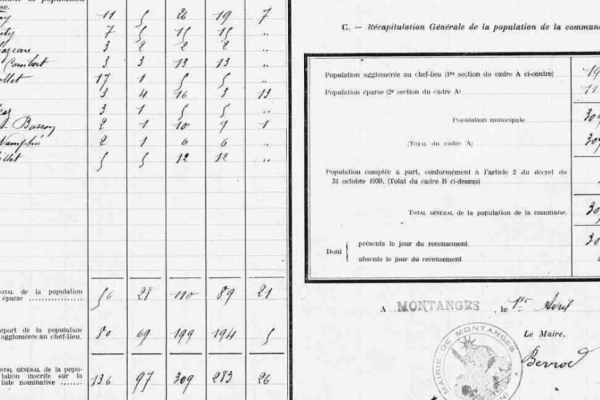 se.
11 5 26 19 7
7 5 15 15 "
3 2 2 2 "
Combert 3 3 13 13 "
ollet 17 1 5 5 "
3 4 16 3 13
3 1 5 5 "
Basson 2 1 10 9 1
2 1 6 6 "
illet 5 5 12 12 "
TOTAL de la population
éparse ................ 56 28 110 89 21
eport de la population
agglomérée au chef-lieu. 80 69 199 194 5
TOTAL GÉNÉRAL de la popu-
lation inscrite sur la
liste nominative ....... 136 97 309 283 26
C. — Récapitulation Générale de la population de la commune
Population agglomérée au chef-lieu (1re section du cadre A ci-contre) 19
Population éparse (2e section du cadre A) 11
Population municipale 30
(TOTAL du cadre A) 30
Population comptée à part, conformément à l'article 2 du décret du
31 octobre 1930, (Total du cadre B ci-dessus)
TOTAL GÉNÉRAL de la population de la commune. 30
Dont
présents le jour du recensement 30
absents le jour du recensement
A MONTANGES, le 1er Avril
Le Maire,
MAIRIE DE MONTANGES